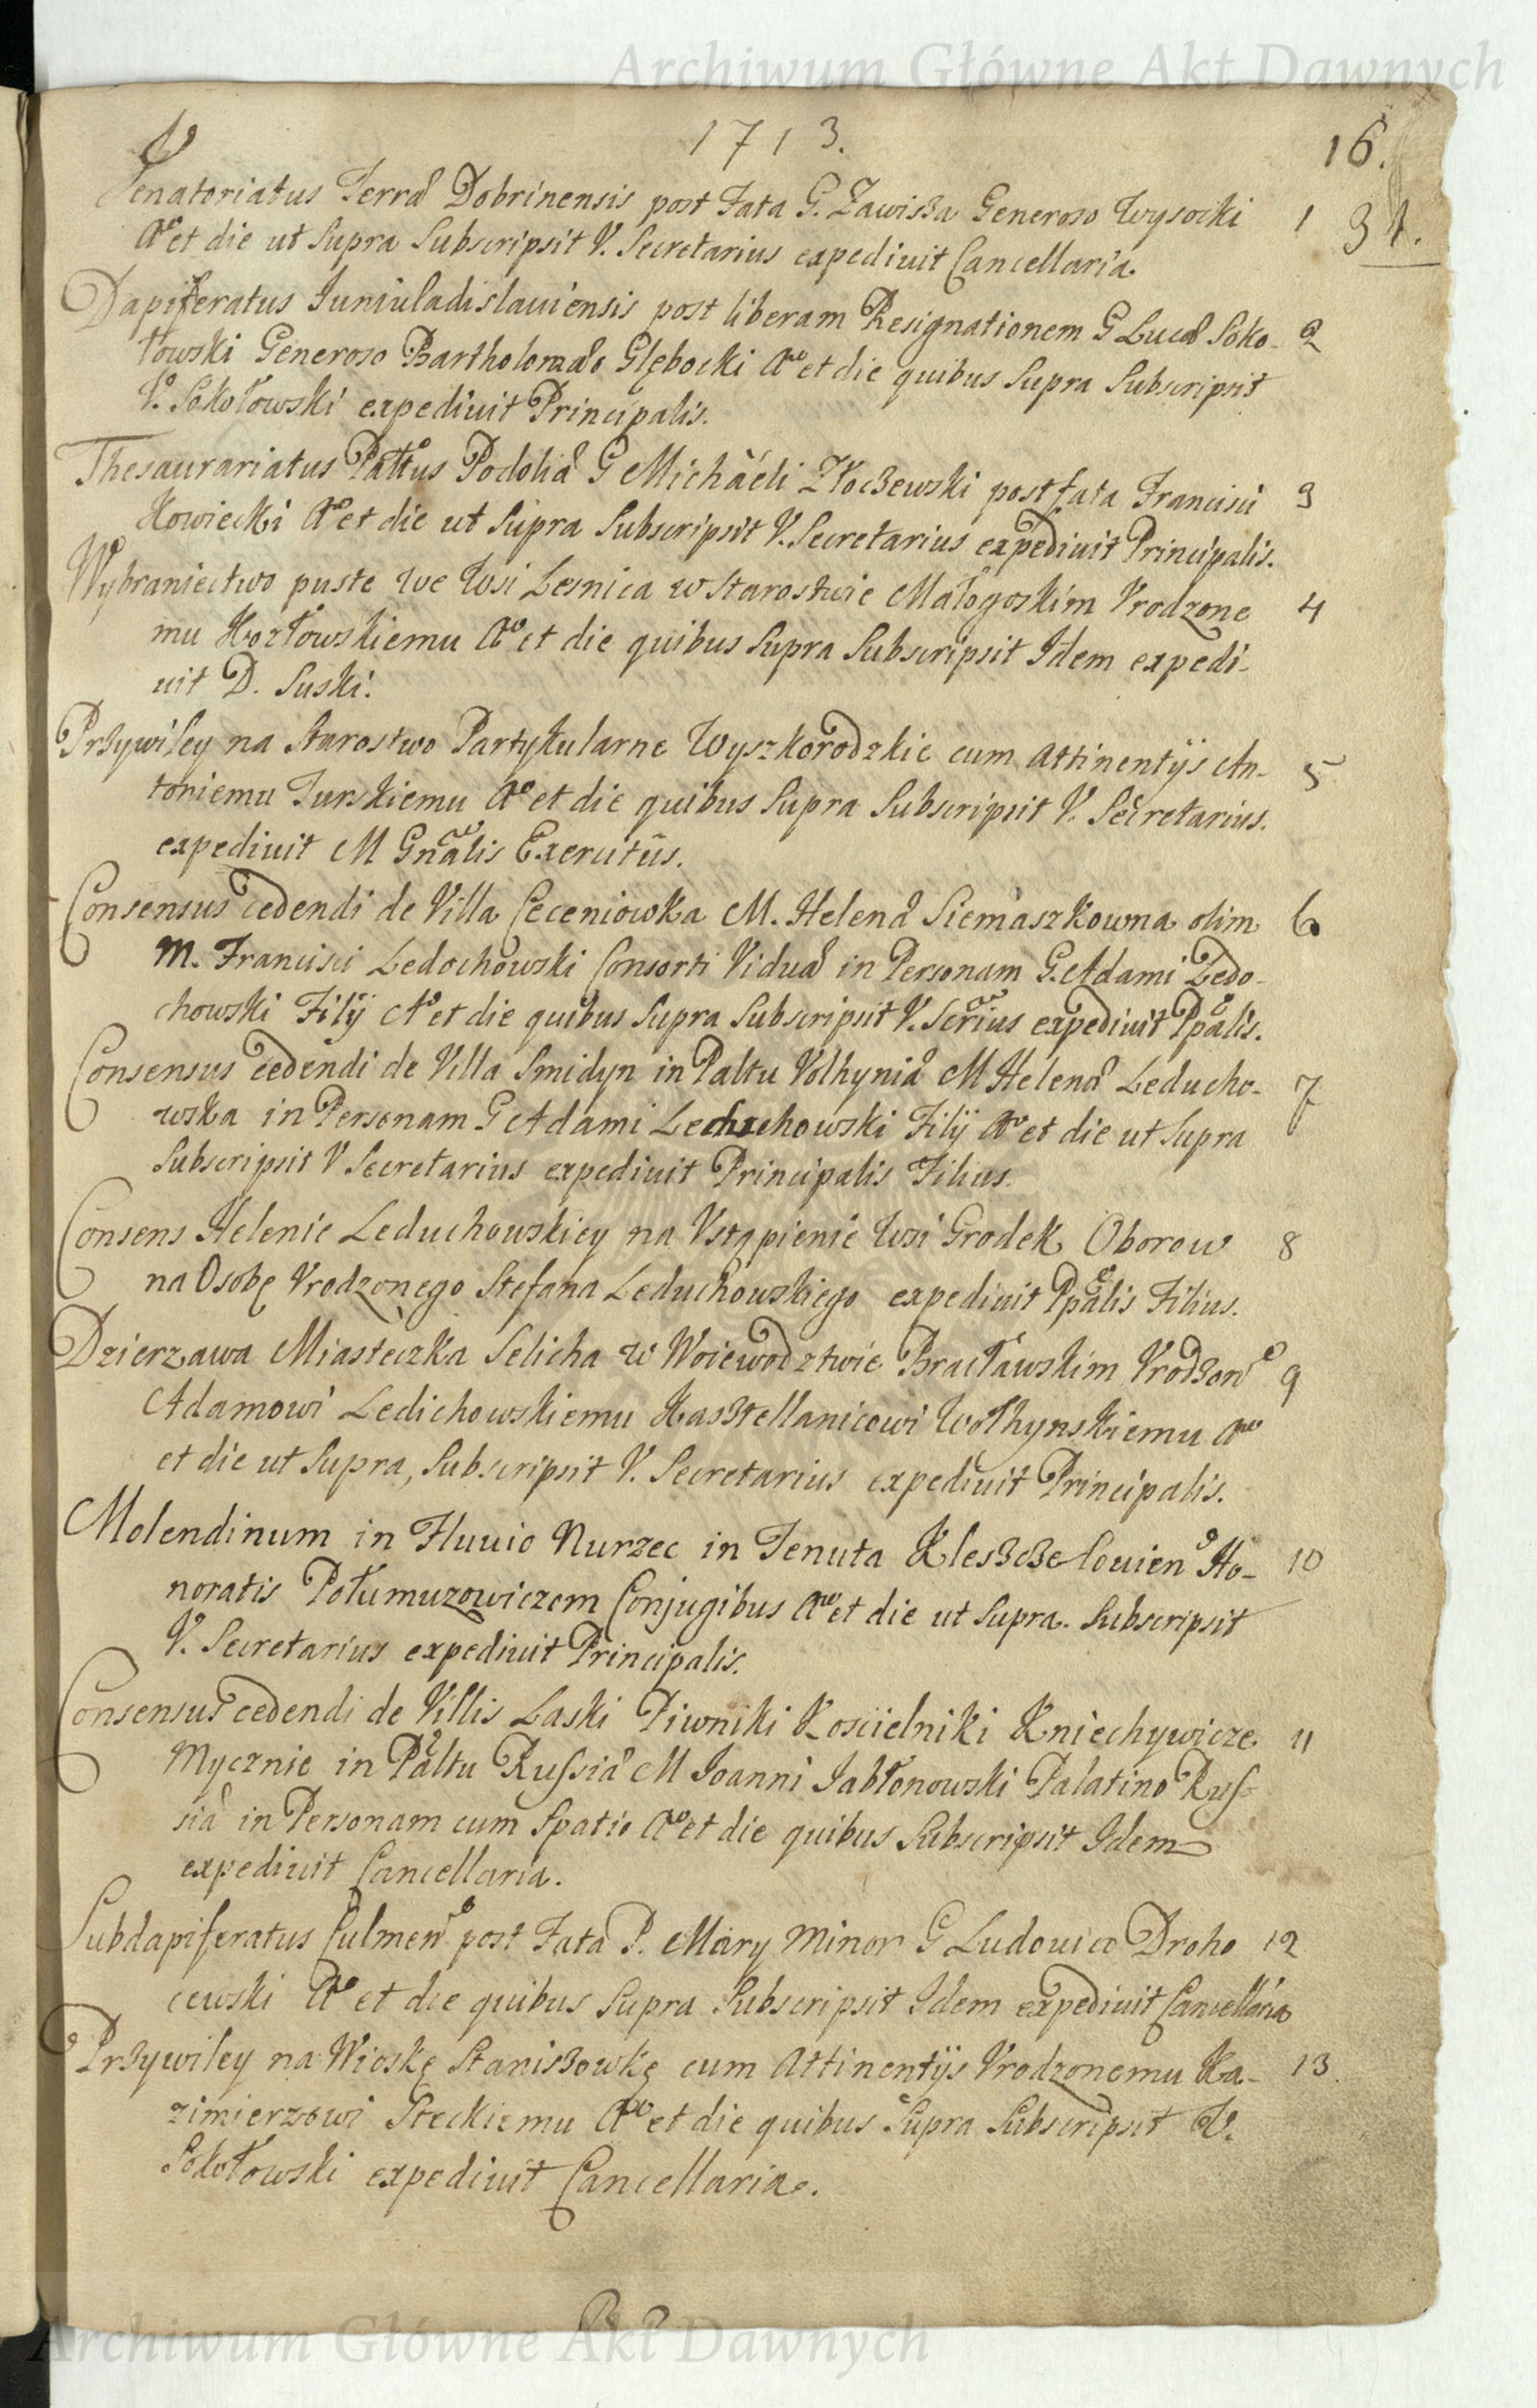 Archiwum Główne Akt Dawnych
1713.
16.
Venatoriatus Terræ Dobrinensis post Fata G. Zawisza Generoso Wysocki 1 31.
Aº et die ut Supra Subscripsit V. Secretarius expediuit Cancellaria.
Dapiferatus Iuniuladislauiensis post liberam Resignationem G Lucæ Soko- 2
łowski Generoso Bartholomæo Głębocki Aº et die quibus Supra Subscripsit
V. Sokołowski expediuit Principalis.
Thesaurariatus Palttus Podoliæ G Michaëli Złoczewski post fata Francisci 3
Kowiecki Aº et die ut Supra Subscripsit V. Secretarius expediuit Principalis.
Wybraniectwo puste we Wsi Lesnica w Starostwie Małogoskim Vrodzone 4
mu Kozłowskiemu Aº et die quibus Supra Subscripsit Idem expedi-
uit D. Suski.
Przywiley na Starostwo Partykularne Wyszkorodzkie cum Attinentijs An- 5
toniemu Turskiemu Aº et die quibus Supra Subscripsit V. Secretarius.
expediuit M Gnalis Exercitus.
Consensus cedendi de Villa Ceceniowka M. Helenæ Siemaszkowna olim 6
M. Francisci Ledochowski Consorti Viduæ in Personam G. Adami Ledo-
chowski Filij Aº et die quibus Supra Subscripsit V. Scrius expediuit Ppalis.
Consensus cedendi de Villa Smidyn in Paltu Volhyniæ M Helenæ Leducho- 7
wska in Personam G Adami Leduchowski Filij Aº et die ut Supra
Subscripsit V Secretarius expediuit Principalis Filius.
Consens Helenie Leduchowskiey na Vstąpienie Wsi Grodek Oborow 8
na Osobę Vrodzonego Stefana Leduchowskiego expediuit Ppalis Filius.
Dzierzawa Miasteczka Selicha w Woiewodztwie Bracławskim Vrodzonº 9
Adamowi Ledichowskiemu Kasztellanicowi Wołhynskiemu Aº
et die ut Supra, Subscripsit V. Secretarius expediuit Principalis.
Molendinum in Fluuio Nurzec in Tenuta Kleszczelouien Ho- 10
noratis Połumuzowiczom Conjugibus Aº et die ut Supra. Subscripsit
V. Secretarius expediuit Principalis.
Consensus cedendi de Villis Laski Piwniki Koscielniki Kniechywicze 11
Mycznie in Paltu Russiæ M Ioanni Jabłonowski Palatino Rus-
siæ in Personam cum Spatio Aº et die quibus Subscripsit Idem
expediuit Cancellaria.
Subdapiferatus Culmen post Fata P. Mary Minor G Ludouico Droho 12
iewski Aº et die quibus Supra Subscripsit Idem expediuit Cancellaria
Przywiley na Wioskę Staniszowkę cum Attinentijs Vrodzonemu Ka- 13.
zimierzowi Steckiemu Aº et die quibus Supra Subscripsit V.
Sokołowski expediuit Cancellaria.
Archiwum Główne Akt Dawnych